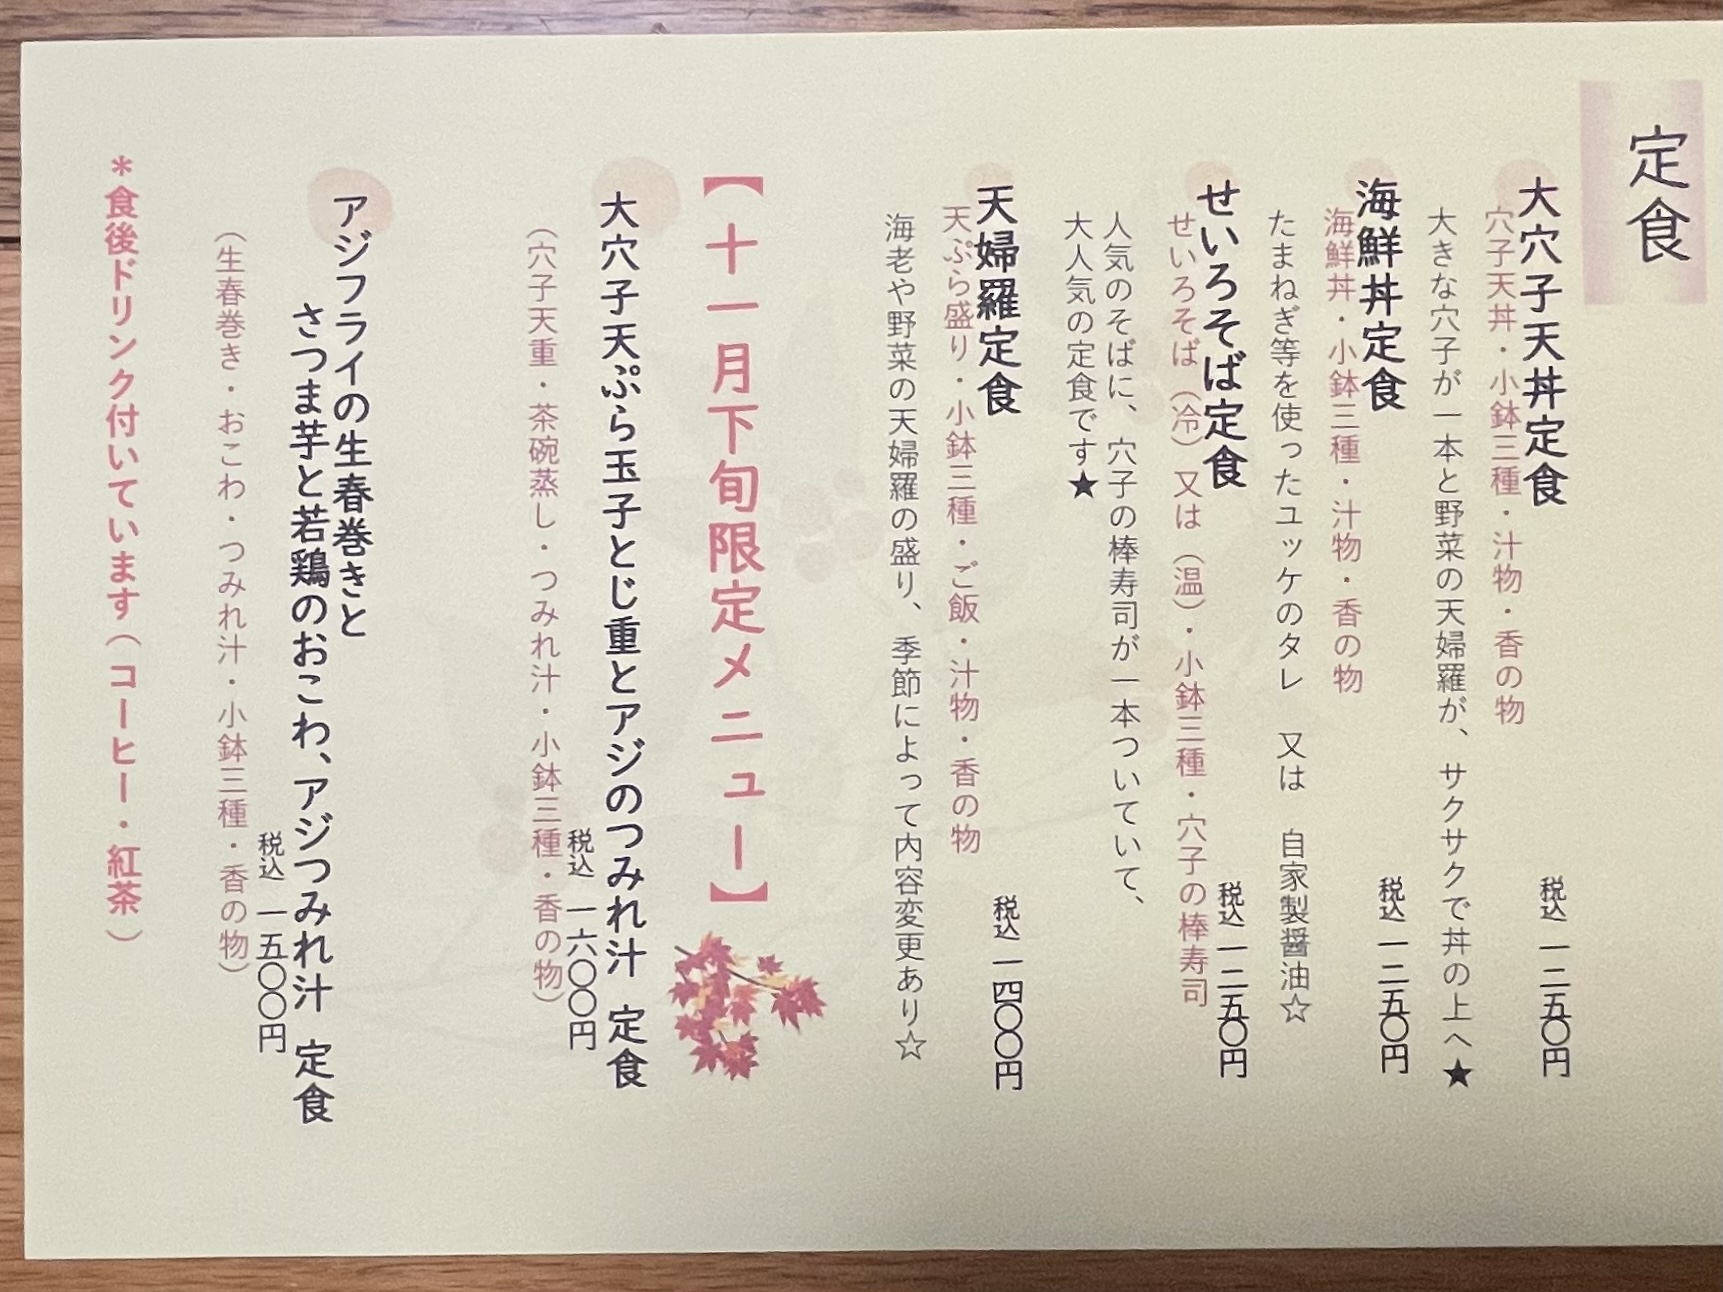 定食
大穴子天丼定食
税込 一二五〇円
穴子天丼・小鉢三種・汁物・香の物
大きな穴子が一本と野菜の天婦羅が、サクサクで丼の上へ★
海鮮丼定食
税込 一二五〇円
海鮮丼・小鉢三種・汁物・香の物
たまねぎ等を使ったユッケのタレ 又は 自家製醤油☆
せいろそば定食
税込 一二五〇円
せいろそば（冷）又は（温）・小鉢三種・穴子の棒寿司
人気のそばに、穴子の棒寿司が一本ついていて、
大人気の定食です★
天婦羅定食
税込 一四〇〇円
天ぷら盛り・小鉢三種・ご飯・汁物・香の物
海老や野菜の天婦羅の盛り、季節によって内容変更あり☆
【十一月下旬限定メニュー】
大穴子天ぷら玉子とじ重とアジのつみれ汁 定食
税込 一六〇〇円
（穴子天重・茶碗蒸し・つみれ汁・小鉢三種・香の物）
アジフライの生春巻きと
さつま芋と若鶏のおこわ、アジつみれ汁 定食
税込 一五〇〇円
（生春巻き・おこわ・つみれ汁・小鉢三種・香の物）
＊食後ドリンク付いています（コーヒー・紅茶）